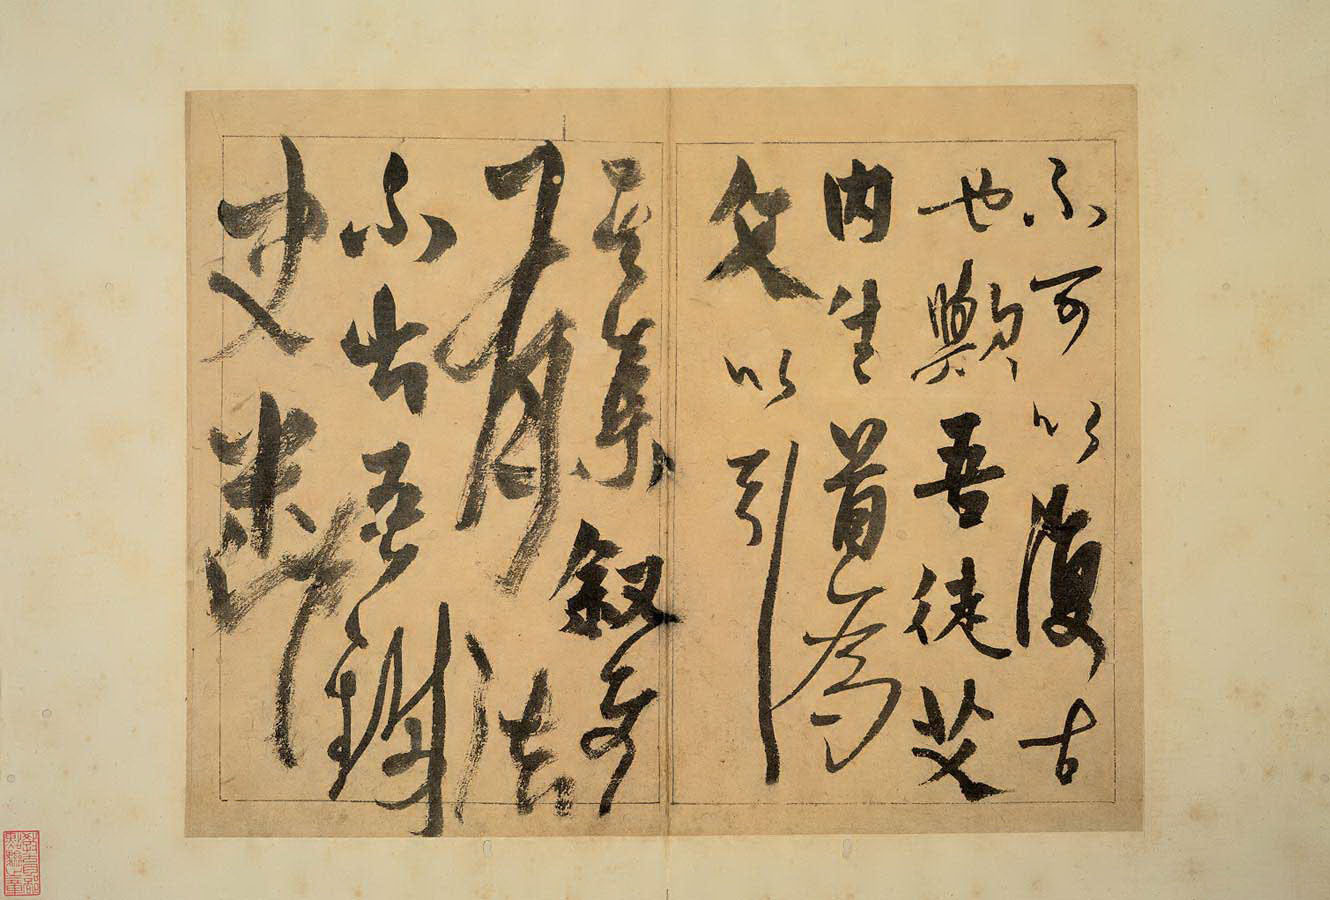 不可以復古
也歟吾徒艾
内生首為
文以引
其集叙奇
有法
不出吾
史